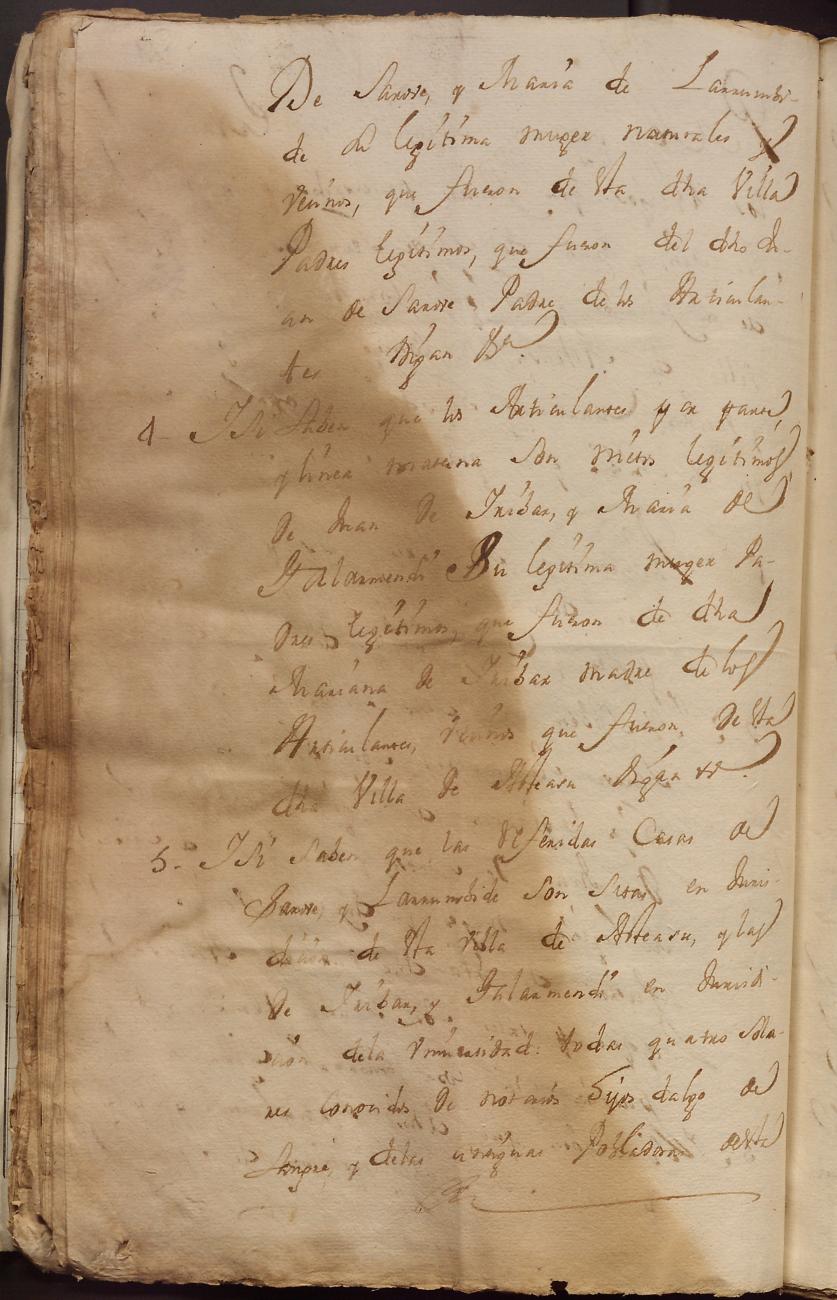 De Sarove, y Maria de Larrumbi-
de su legitima muger naturales y
vecinos, que fueron de sta dha Villa
Padres legitimos, que fueron del dho Ju-
an de Sarove Padre de los Articulan-
tes Digan &a.
4- Itt Si saben que los Articulantes por parte,
y linea materna son nietos legitimos
de Juan de Iribar, y Maria de
Jalarmendi su legitima muger Pa-
dres legitimos, que fueron de dha
Mariana de Iribar madre de los
Articulantes, vecinos que fueron, de sta
dha Villa de Asteasu Digan &a.
5- Itt Si saben que las referidas Casas de
Sarove, y Larrumbide son sitas en Juris-
dicion de sta Villa de Asteasu, y las
de Iribar, y Jalarmendi en Jurisdi-
cion dela Vniversidad: todas quatro Sola-
res conocidos de notorios hijos dalgo de
sangre, y delas antiguas Pobladoras desta